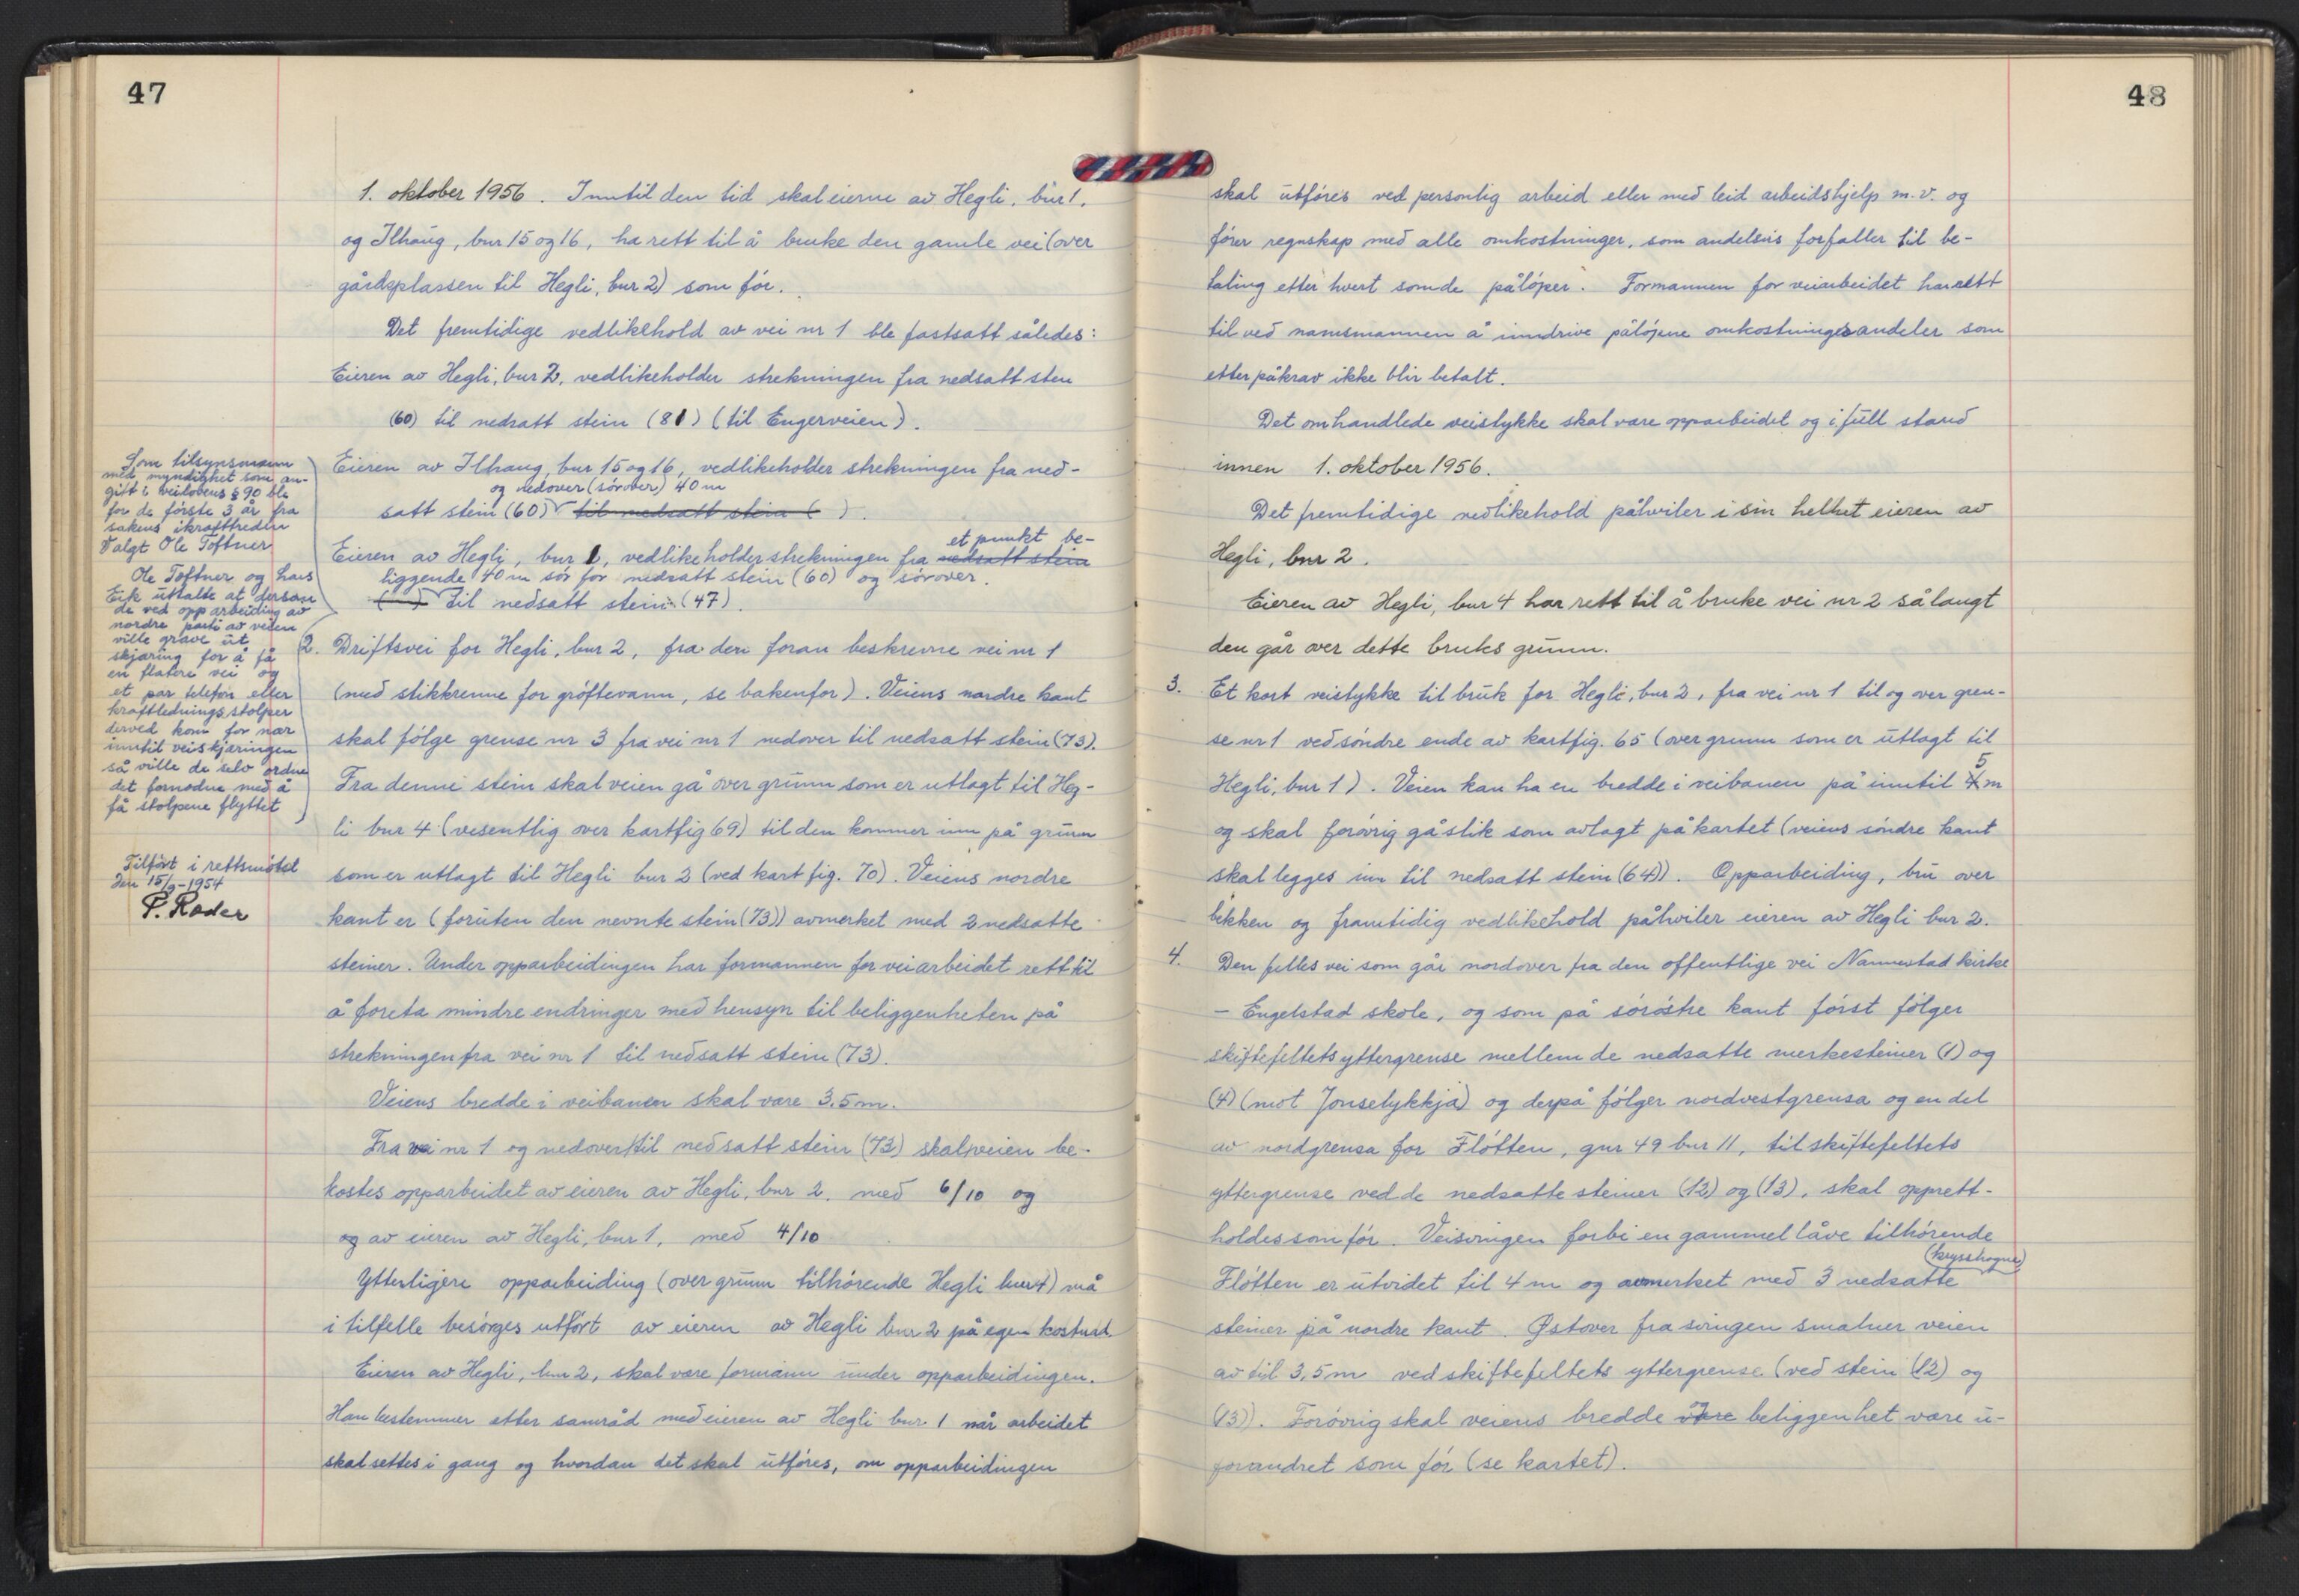 47
1. oktober 1956. Inntil den tid skal eierne av Hegli, bnr 1,
og Ilhaug, bnr 15 og 16, ha rett til å bruke den gamle vei (over
gårdsplassen til Hegli, bnr 2) som før.
Det fremtidige vedlikehold av vei nr 1 ble fastsatt således:
Eieren av Hegli, bnr 2, vedlikeholder strekningen fra nedsatt sten
(60) til nedsatt stein (81) (til Engerveien).
Eieren av Ilhaug, bnr 15 og 16, vedlikeholder strekningen fra ned-
og nedover (sørover) 40 m
satt stein (60) til nedsatt stein ( ).
et punkt be-
Eieren av Hegli, bnr 1, vedlikeholder strekningen fra nedsatt stein
liggende 40 m sør for nedsatt stein (60) og sørover.
( ) til nedsatt stein (47).
2. Driftsvei for Hegli, bnr 2, fra den foran beskrevne vei nr 1
(med stikkrenne for grøftevann, se bakenfor). Veiens nordre kant
skal følge grense nr 3 fra vei nr 1 nedover til nedsatt stein (73).
Fra denne stein skal veien gå over grunn som er utlagt til Heg-
li bnr 4 (vesentlig over kartfig 69) til den kommer inn på grunn
som er utlagt til Hegli bnr 2 (ved kartfig. 70). Veiens nordre
kant er (foruten den nevnte stein (73)) avmerket med 2 nedsatte
steiner. Under opparbeidingen har formannen for veiarbeidet rett til
å foreta mindre endringer med hensyn til beliggenheten på
strekningen fra vei nr 1 til nedsatt stein (73).
Veiens bredde i veibanen skal være 3.5 m.
Fra vei nr 1 og nedover til nedsatt stein (73) skal veien be-
kostes opparbeidet av eieren av Hegli, bnr 2. med 6/10 og
og av eieren av Hegli, bnr 1, med 4/10
Ytterligere opparbeiding (over grunn tilhørende Hegli bnr 4) må
i tilfelle besørges utført av eieren av Hegli bnr 2 på egen kostnad.
Eieren av Hegli, bnr 2, skal være formann under opparbeidingen.
Han bestemmer etter samråd med eieren av Hegli bnr 1 når arbeidet
skal settes i gang og hvordan det skal utføres, om opparbeidingen
Som tilsynsmann
med myndighet som an-
gitt i veilovens § 90 ble
for de første 3 år fra
sakens ikrafttreden
valgt Ole Toftner
Ole Toftner og Lars
Eik uttalte at dersom
de ved opparbeiding av
nordre parti av veien
ville grave ut
skjæring for å få
en flatere vei og
et par telefon eller
kraftledningsstolper
derved kom for nær
inntil veiskjæringen
så ville de selv ordne
det fornødne med å
få stolpene flyttet
Tilført i rettsmøtet
den 15/9-1954
P. Røder
48
skal utføres ved personlig arbeid eller med leid arbeidshjelp m.v. og
fører regnskap med alle omkostninger, som andelsvis forfaller til be-
taling etter hvert som de påløper. Formannen for veiarbeidet har rett
til ved namsmannen å inndrive påløpne omkostningsandeler som
etter påkrav ikke blir betalt.
Det omhandlede veistykke skal være opparbeidet og i full stand
innen 1. oktober 1956.
Det fremtidige vedlikehold påhviler i sin helhet eieren av
Hegli, bnr 2.
Eieren av Hegli, bnr 4 har rett til å bruke vei nr 2 så langt
den går over dette bruks grunn.
3. Et kort veistykke til bruk for Hegli, bnr 2, fra vei nr 1 til og over gren-
se nr 1 ved søndre ende av kartfig. 65 (over grunn som er utlagt til
Hegli, bnr 1). Veien kan ha en bredde i veibanen på inntil 5 m
og skal forøvrig gå slik som avlagt på kartet (veiens søndre kant
skal legges inn til nedsatt stein (64)). Opparbeiding, bru over
bekken og framtidig vedlikehold påhviler eieren av Hegli bnr 2.
4. Den felles vei som går nordover fra den offentlige vei Nannestad kirke
- Engelstad skole, og som på sørøstre kant først følger
skiftefeltets yttergrense mellem de nedsatte merkesteiner (1) og
(4) (mot Jonselykkja) og derpå følger nordvestgrensa og en del
av nordgrensa for Fløtten, gnr 49 bnr 11, til skiftefeltets
yttergrense ved de nedsatte steiner (12) og (13), skal opprett-
holdes som før. Veisvingen forbi en gammel låve tilhørende
(krysshogne)
Fløtten er utvidet til 4 m og avmerket med 3 nedsatte
steiner på nordre kant. Østover fra svingen smalner veien
av til 3,5 m ved skiftefeltets yttergrense (ved stein (12) og
(13)). Forøvrig skal veiens bredde være beliggenhet være u-
forandret som før (se kartet).